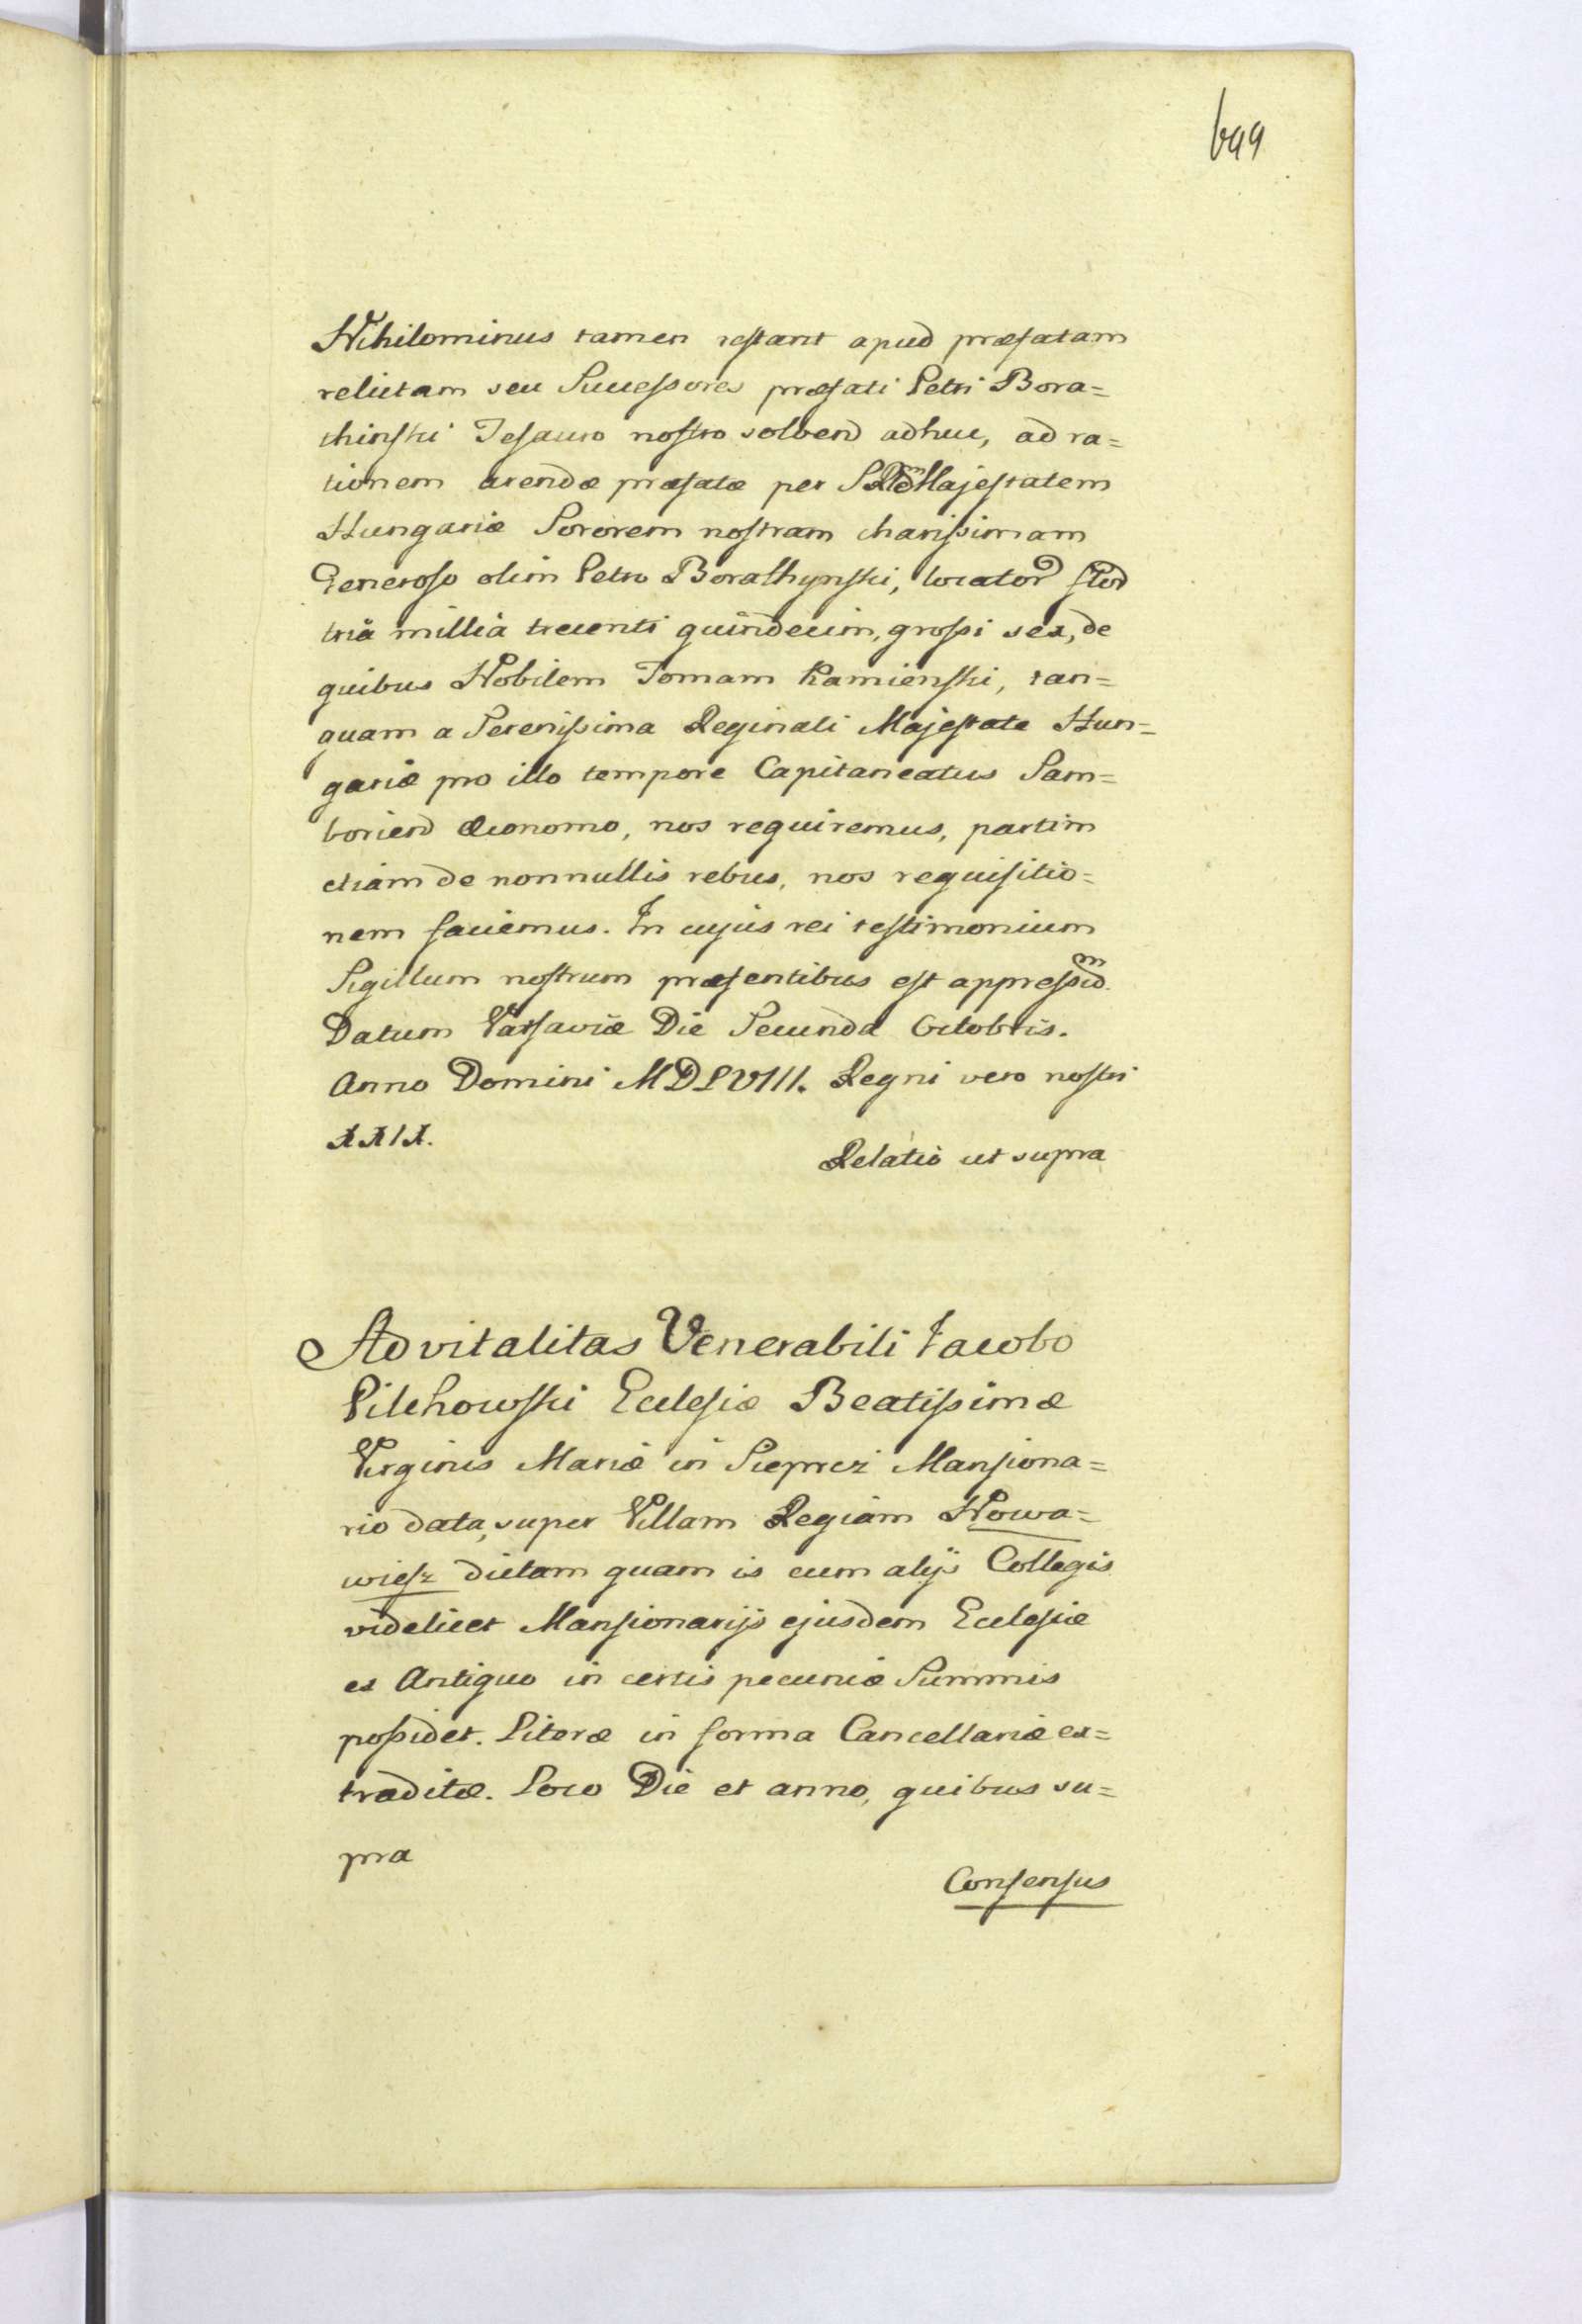 699
Nihilominus tamen restant apud præfatam
relictam seu Successores præfati Petri Bora=
thinski Tesauro nostro solvend adhuc, ad ra=
tionem arendæ præfatæ per S R Majestatem
Hungariæ Sororem nostram charissimam
Generoso olim Petro Borathynski, locator flor
tria millia trecenti quindecim, grossi sex, de
quibus Nobilem Tomam Kamienski, tan=
quam a Serenissima Reginali Majestate Hun=
gariæ pro illo tempore Capitaneatus Sam=
boriens œconomo, nos requiremus, partim
etiam de nonnullis rebus, nos requisitio=
nem faciemus. In cujus rei testimonium
Sigillum nostrum præsentibus est appressū.
Datum Varsaviæ Die Secunda Octobris.
Anno Domini MDLVIII. Regni vero nostri
XXIX.
Relatio ut supra
Advitalitas Venerabili Jacobo
Pilchowski Ecclesiæ Beatissimæ
Virginis Mariæ in Sieprcz Mansiona=
rio data, super Villam Regiam Nowa=
wiesz dictam quam is cum alijs Collegis
videlicet Mansionarijs ejusdem Ecclesiæ
ex Antiquo in certis pecuniæ Summis
possidet. Literæ in forma Cancellariæ ex=
traditæ. Loco Die et anno, quibus su=
pra
Consensus